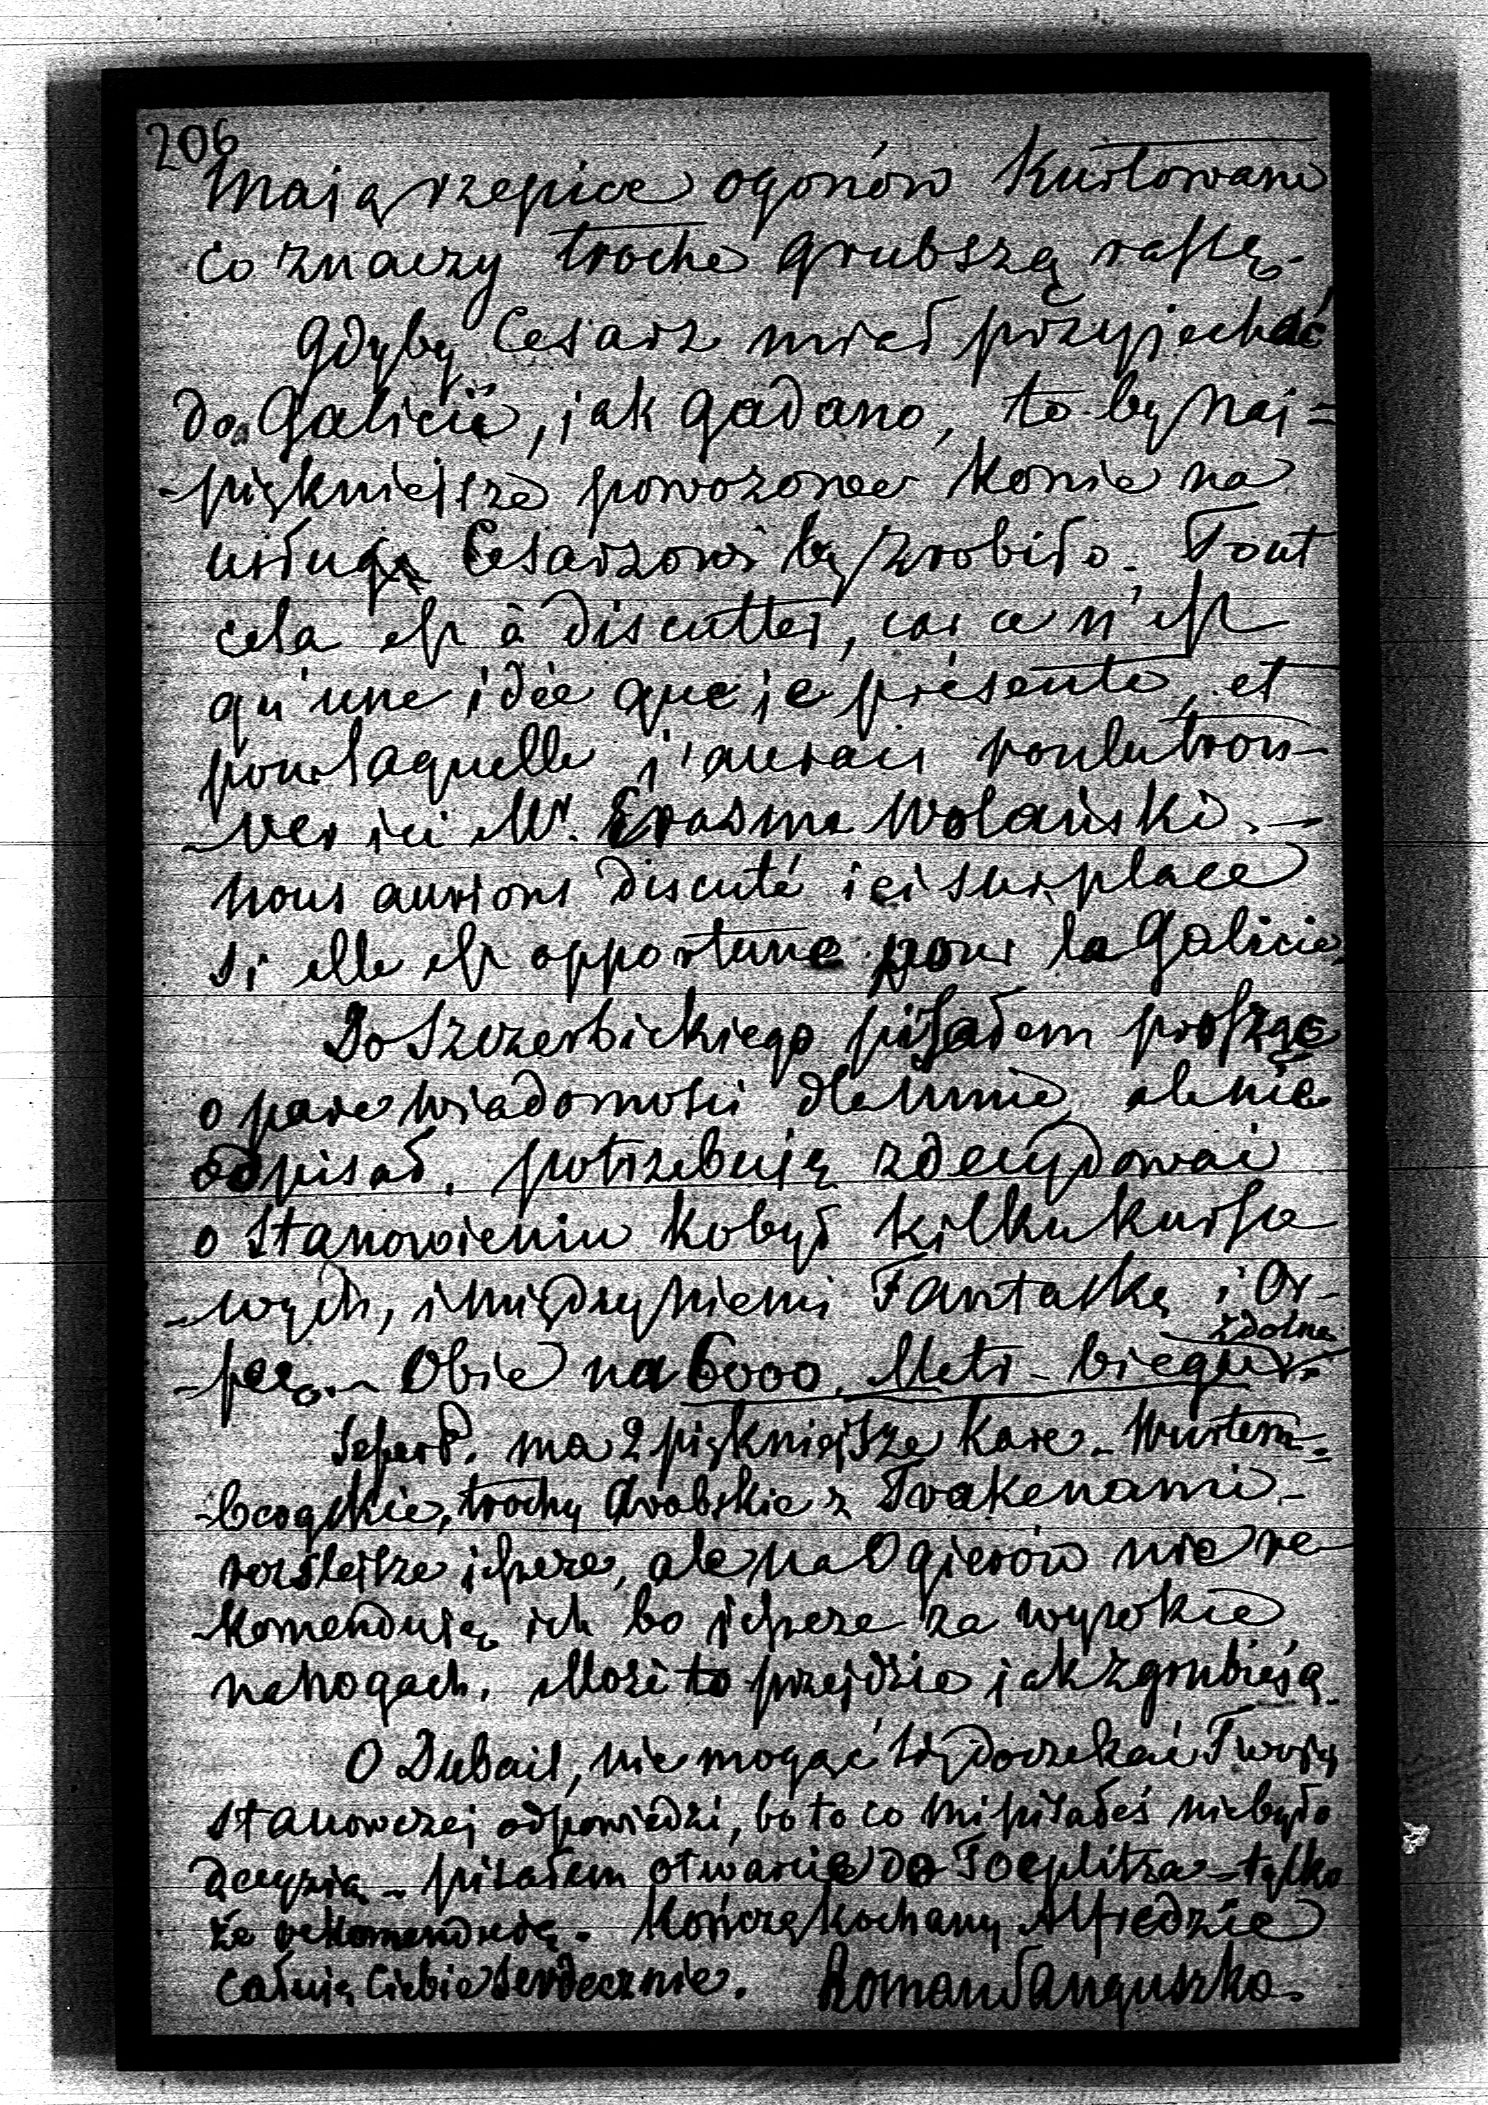 206
Mają rzepice ogonów Kurtowane
co znaczy trochę grubszą
Gdyby Cesarz miał przyjechać
do Galicii, jak gadano, to by naj=
-piękniejsze powozowe Konie na
usługę Cesarzowi by zrobiło. Tout
cela est à discutter, car ce n'est
qu'une idée que je présente, et
pour laquelle j'aurais voulu trou-
-ver ici Mr. Erasme Wolański. -
nous aurions discuté ici sur place
si elle est opportune pour la Galicie.
Do Szczerbickiego pisałem prosząc
o parę wiadomości dla mnie, ale nie
odpisał. potrzebuję zdecydować
o Stanowieniu Kobył kilku kurso
-wych, i między niemi Fantaską i Or-
zdolne
- Obie na 6000 Metr - biegu.
ma 2 piękniejsze Kare - Wurtem=
-bergskie, trochę Arabskie z Trakenami -
roślejsze jeszcze, ale na Ogierów nie re-
-Komenduję ich bo jeszcze za wysokie
na nogach. Może to przejdzie jak zgrubieją.
O Dubail, nie mogąc się doczekać Twojej
stanowczej odpowiedzi, bo to co mi pisałeś nie było
decyzią - pisałem otwarcie do Toeplitza - tylko
że rekomenduję. Kończę Kochany Alfredzie
całuię Ciebie Serdecznie. Roman Sanguszko.